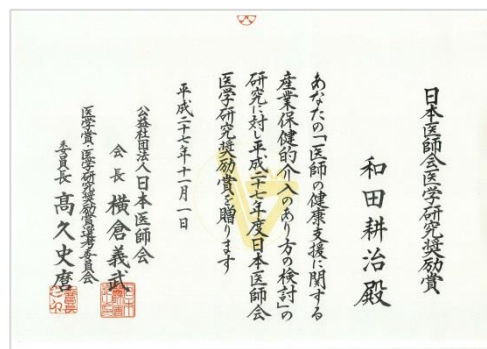 日本医師会医学研究奨励賞
和田耕治殿
あなたの「医師の健康支援に関する
産業保健的介入のあり方の検討」の
研究に対し平成二十七年度日本医師会
医学研究奨励賞を贈ります
平成二十七年十一月一日
公益社団法人日本医師会
会長 横倉義武
医学賞・医学研究奨励賞選考委員会
委員長 髙久史麿